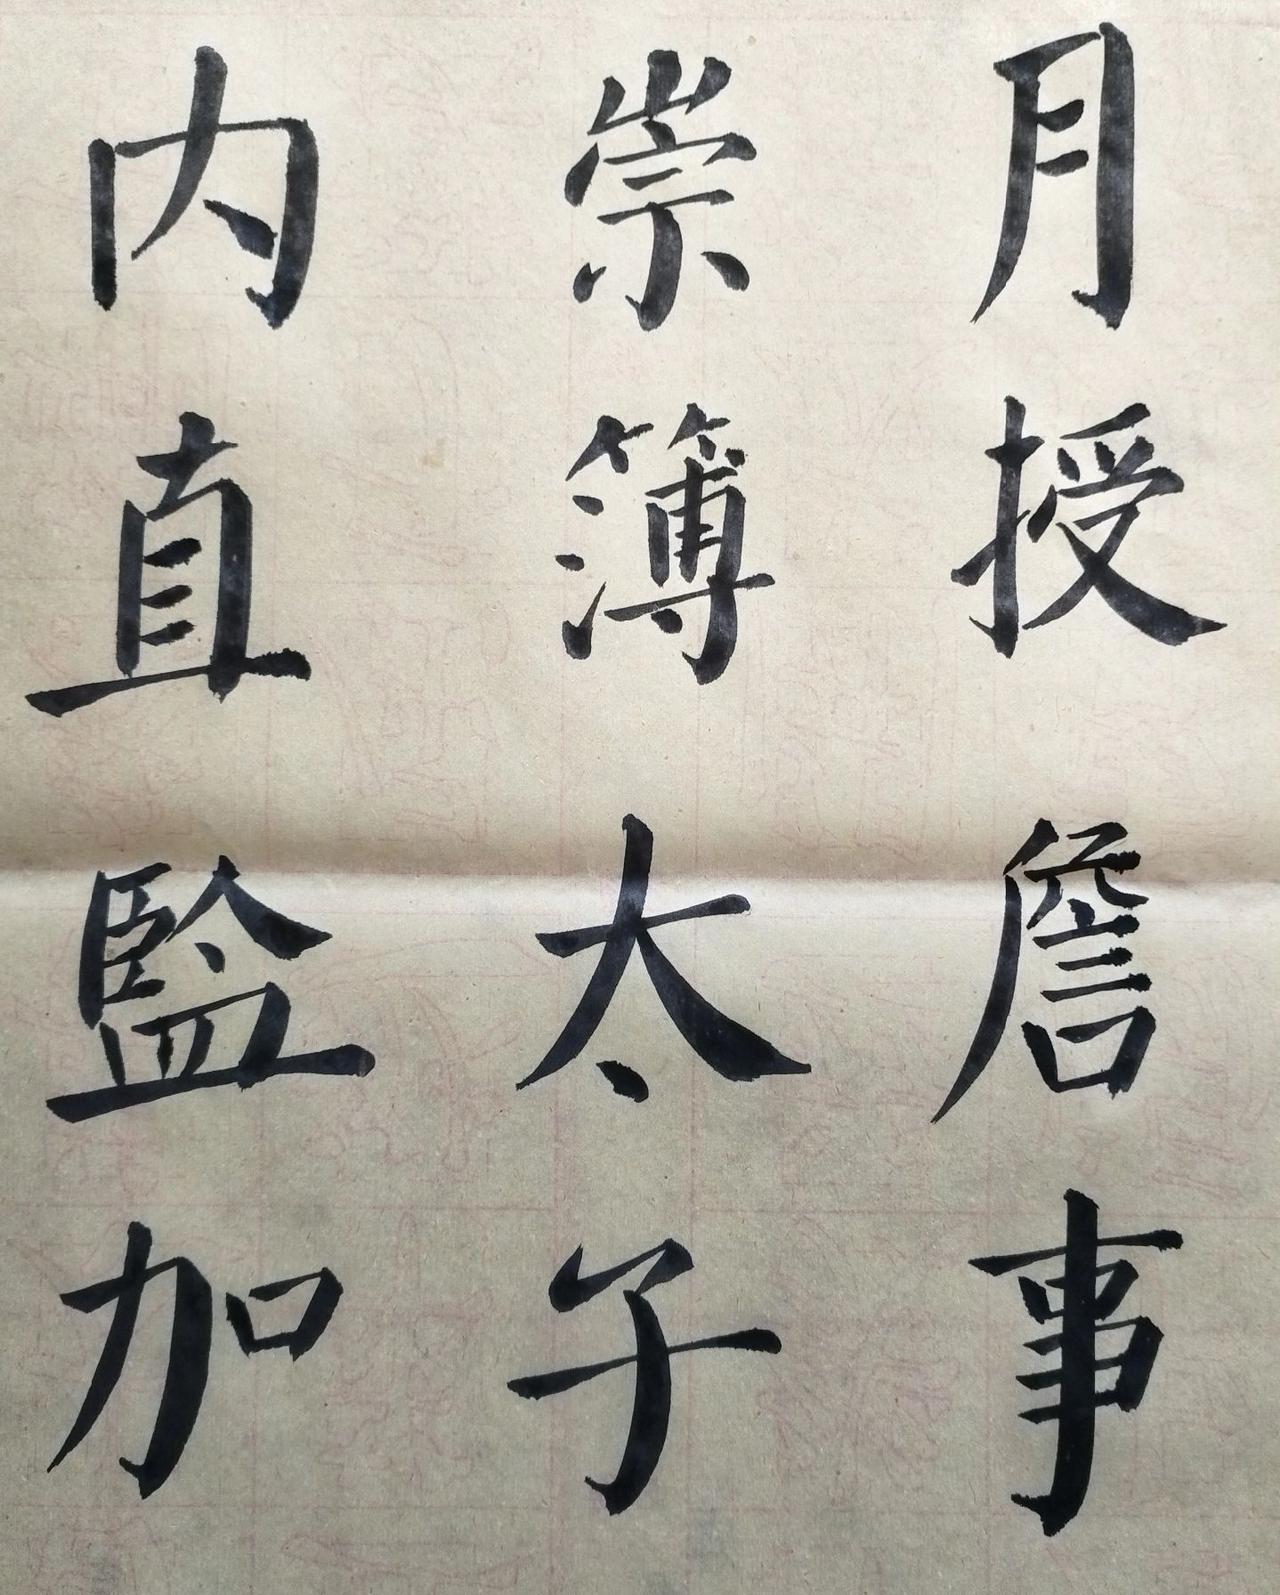 月授詹事
崇簿太子
内直監加